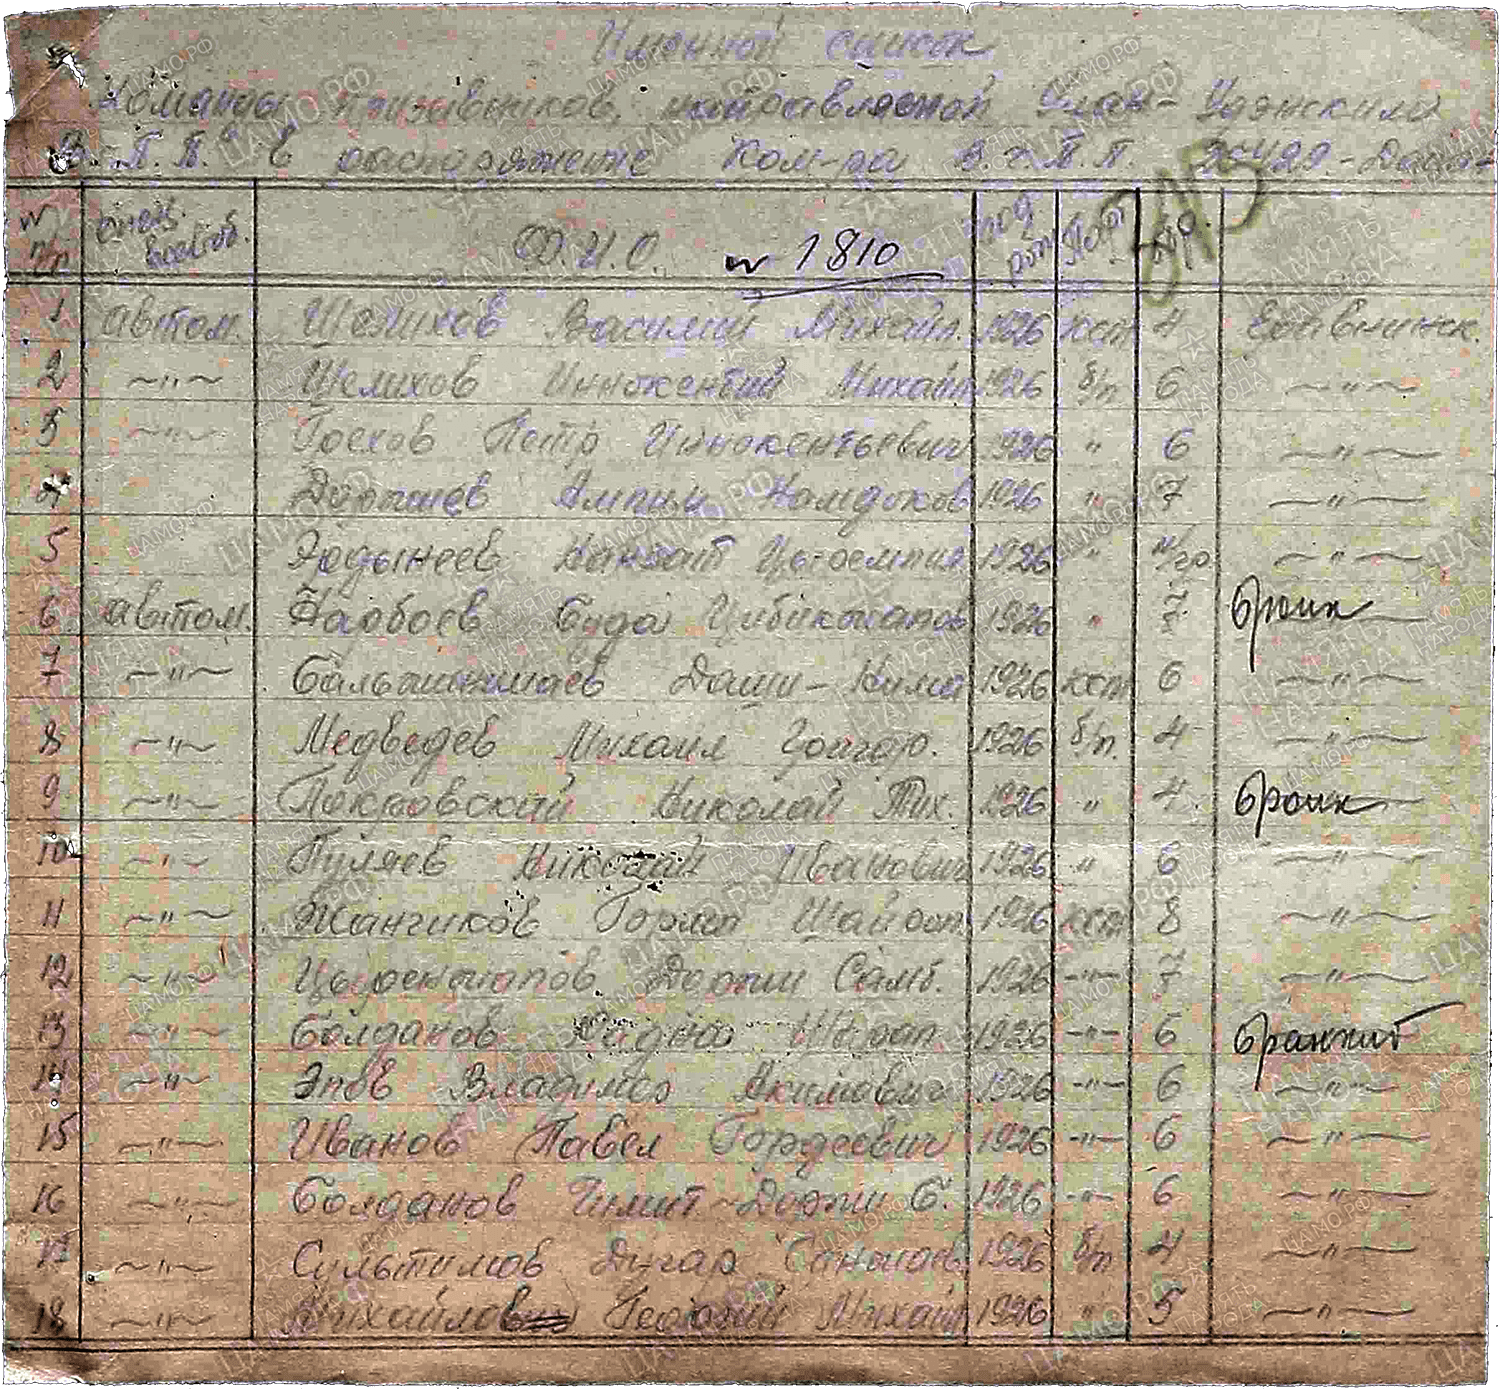 Именной список
Команды призывников, направляемой Улан-Удэнским
В. П. П. в распоряжение Ком-ра в.ч. П.П.
№ п/п спец. Ф.И.О. № 1810 год рож Парт обр.
1 автом. Шелихов Василий Михайл. 1926 ксм 4 Еравнинск.
2 ~"~ Шелихов Иннокентий Михайл 1926 б/п 6 ~"~
3 ~"~ Петр Иннокентьевич 1926 " 6 ~"~
4 Намдаков 1926 " 7 ~"~
5 Эрдынеев 1926 " н/гр ~"~
6 автом. Нарбоев Буда 1926 " 7 броик
7 ~"~ Бальжинимаев Даши-Нима 1926 ксм 6 ~"~
8 ~"~ Медведев Михаил Григор. 1926 б/п. 4 ~"~
9 ~"~ Покровский Николай Тих. 1926 " 4 броик
10 ~"~ Пуляев Николай Иванович 1926 " 6 ~"~
11 ~"~ Жанчиков 1926 ксм 8 ~"~
12 ~"~ Цыренжапов Доржи Самб. 1926 -"- 7 ~"~
13 ~"~ Болданов 1926 -"- 6
14 ~"~ Эпов Владимир Акимович 1926 -"- 6 ~"~
15 ~"~ Иванов Павел Гордеевич 1926 -"- 6 ~"~
16 ~"~ Болданов Чимит-Доржи Б. 1926 -"- 6 ~"~
17 ~"~ Сультимов Дугар 1926 б/п 4 ~"~
18 ~"~ Михайлов Георгий Михайл 1926 " 5 ~"~